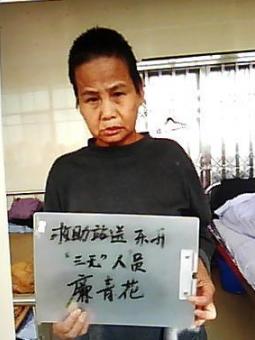 救助站送 东升
“三无”人员
廉青花